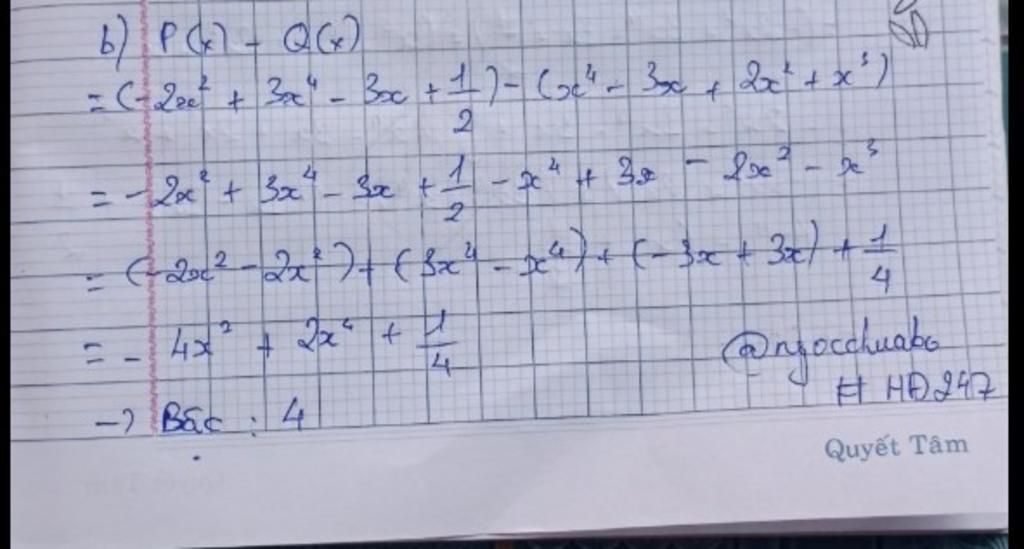 b) P(x) - Q(x)
= (-2x² + 3x⁴ - 3x + 1/2) - (x⁴ - 3x + 2x² + x³)
= -2x² + 3x⁴ - 3x + 1/2 - x⁴ + 3x - 2x² - x³
= (-2x² - 2x²) + (3x⁴ - x⁴) + (-3x + 3x) + 1/4
= -4x² + 2x⁴ + 1/4
@ngocchuabo
# HĐ247
→ Bậc : 4
Quyết Tâm